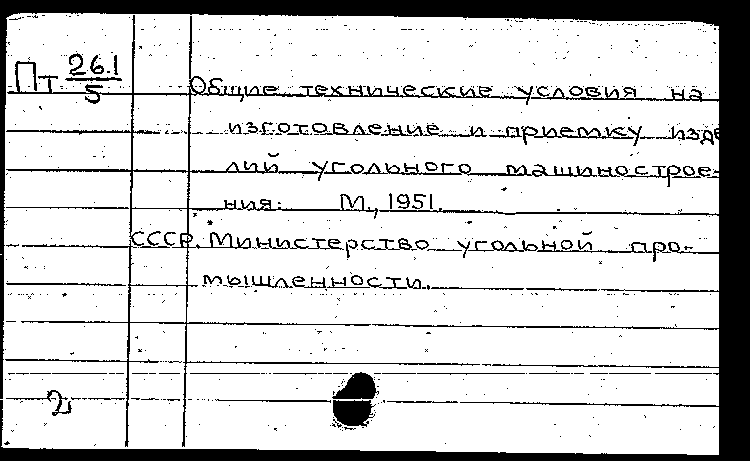 Пт 261
5
Общие технические условия на
изготовление и приемку изде
лий угольного машинострое-
ния. М., 1951.
СССР. Министерство угольной про-
мышленности.
2